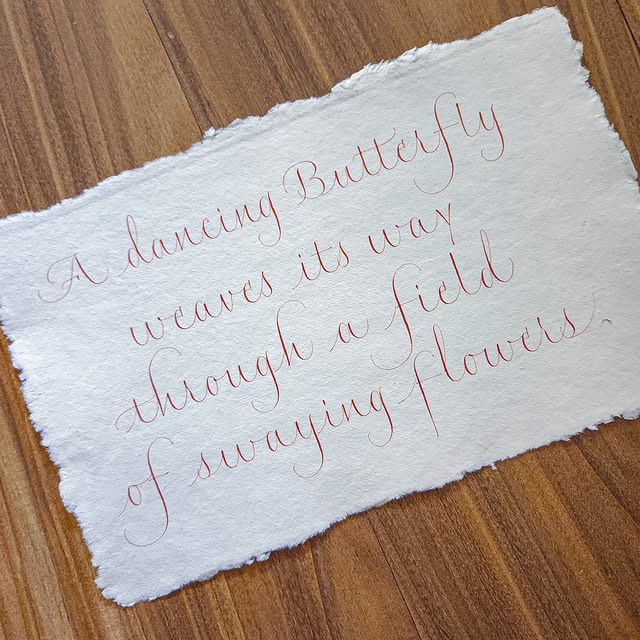 A dancing Butterfly
weaves its way
through a field
of swaying flowers.